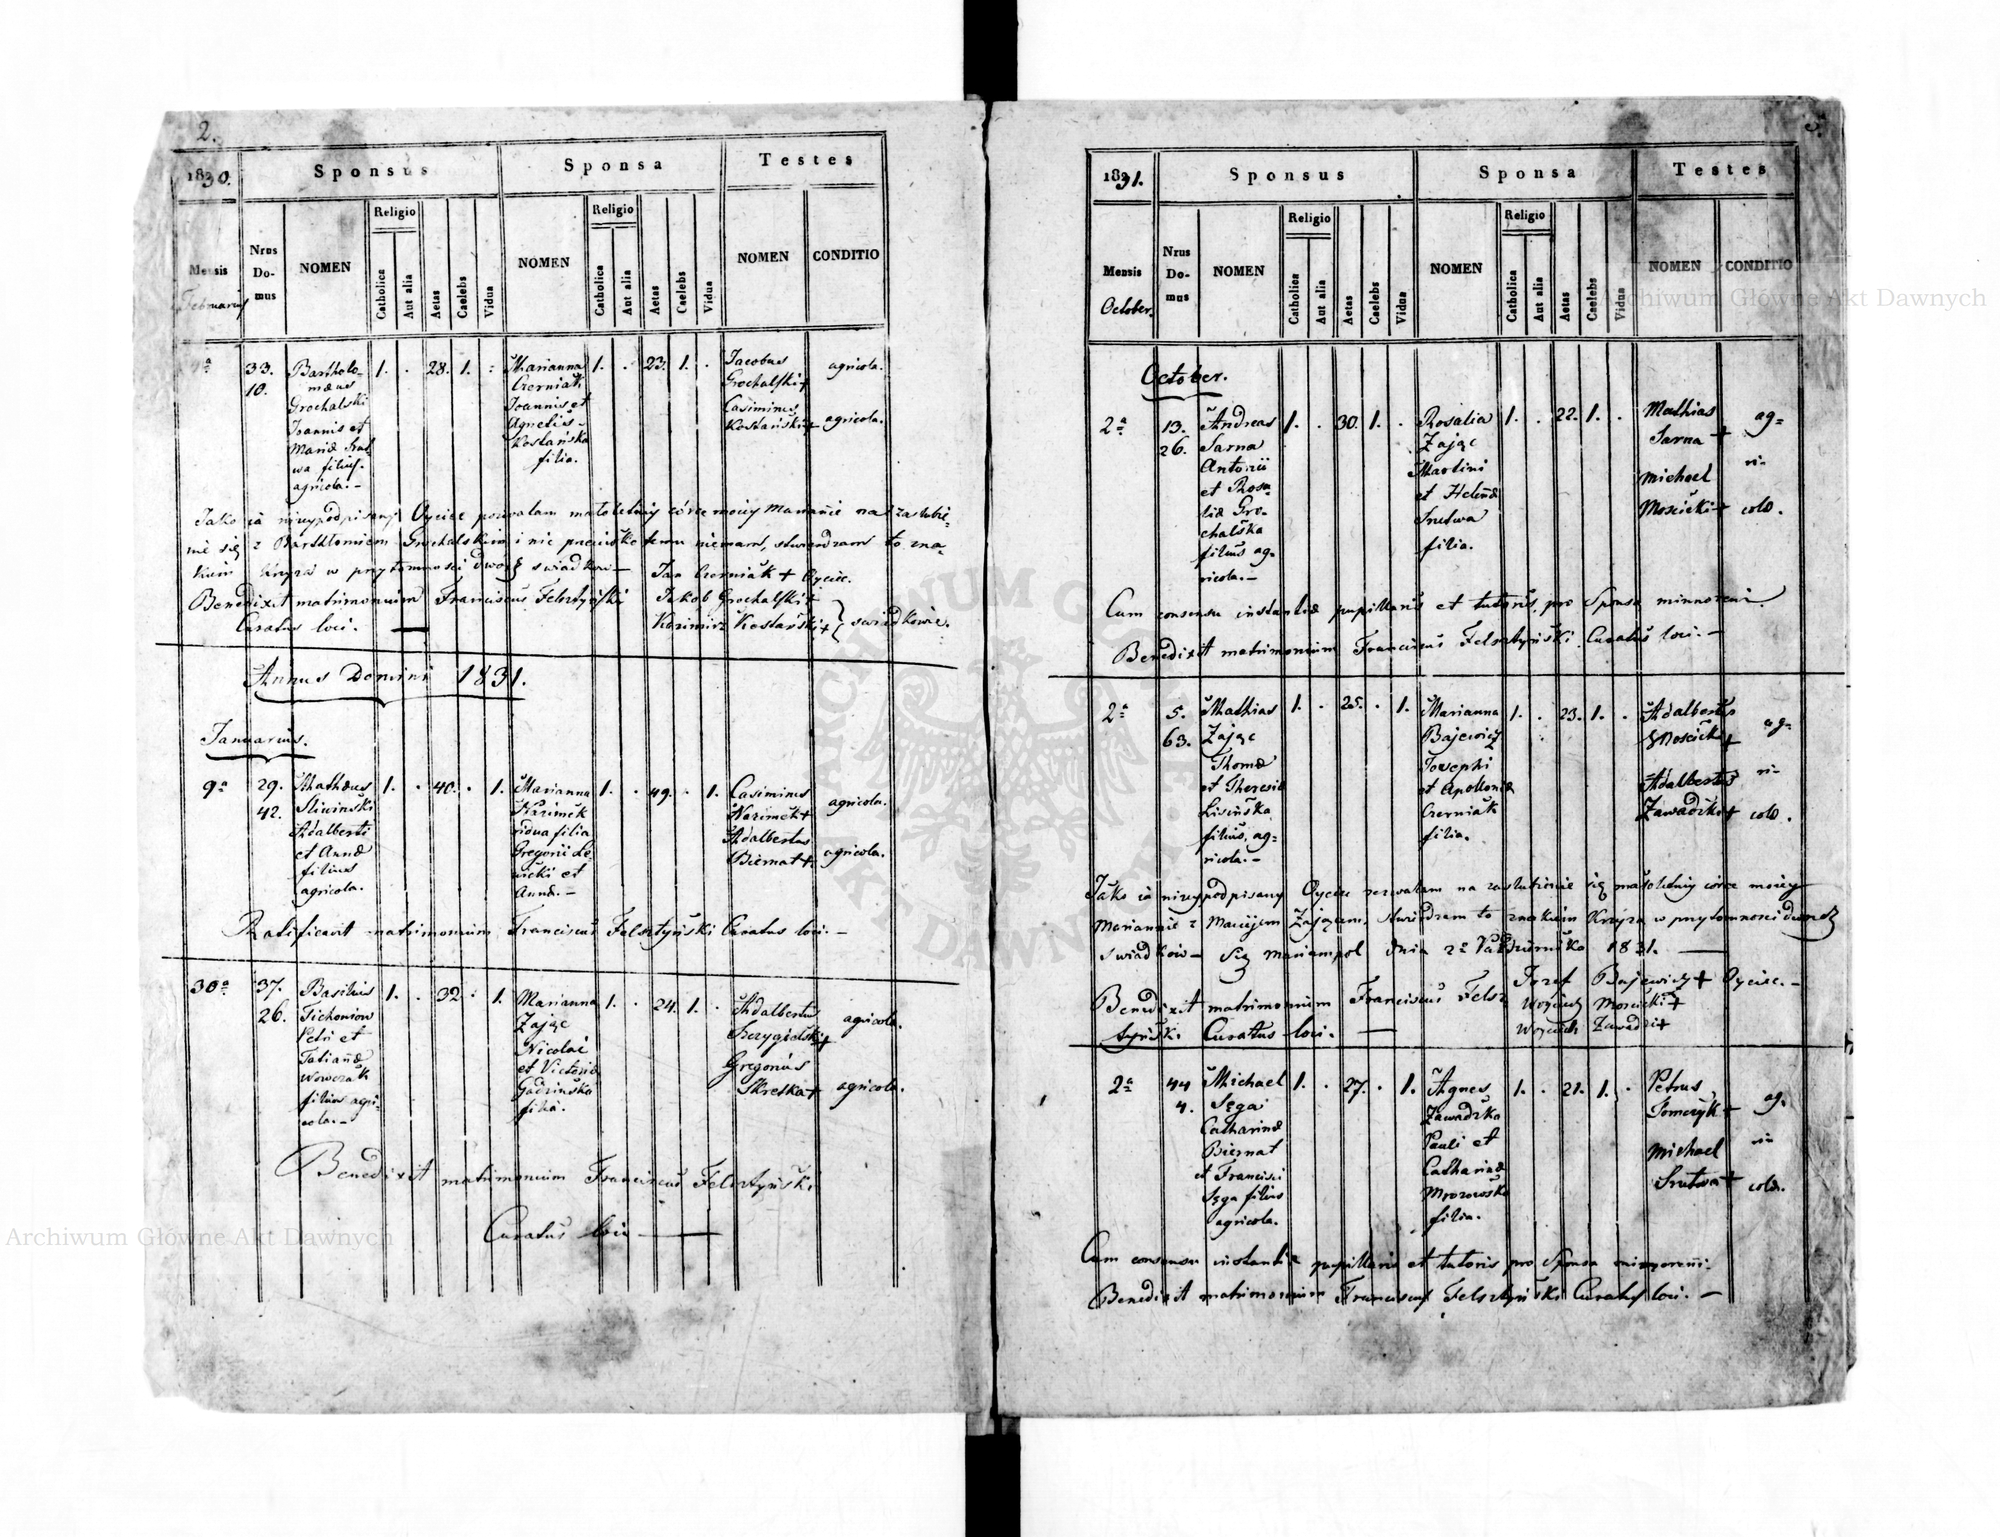 2.
1830.
Sponsus
Sponsa
Testes
Mensis
Februarius
Nrus Domus
NOMEN
Religio
Catholica
Aut alia
Aetas
Caelebs
Vidua
NOMEN
Religio
Catholica
Aut alia
Aetas
Caelebs
Vidua
NOMEN
CONDITIO
33.
10.
Bartholo-
maeus
Grochalski
Joannis et
agricola.-
1. . 28. 1. .
Marianna
Czerniak
Joannis et
Agnetis
Kostańska
filia.
1. . 23. 1. .
Jacobus
Grochalski+
Casimirus
Kostański+
agricola.
agricola.
Jako ia niżey podpisany Oyciec pozwalam małoletniey córce moiey Mariannie na zaślubie-
nie się z Bartłomiem Grochalskim i nic przeciwko temu niemam, stwierdzam to zna-
kiem Krzyża w przytomności dwoch swiadkow—
Jan Czerniak + Oyciec.
Benedixit matrimonium Franciscus Felsztyński
Jakob Grochalski+
Curatus loci. —
Kazimirz Kostański+ } swiadkowie.
Annus Domini 1831.
Januarius.
9ª
29.
42.
Mathaeus
Sliwinski
Adalberti
et Annæ
filius
agricola.
1. . 40. . 1.
Marianna
Kazimek
vidua filia
Gregorii Le-
wicki et
Annæ.-
1. . 49. . 1.
Casimirus
Kazimek+
Adalbertus
Biernat+
agricola.
agricola.
Ratificavit matrimonium Franciscus Felsztyński Curatus loci.-
30ª
37.
26.
Basilius
Tichoniow
Petri et
Tatiannæ
Wowczak
filius agri-
cola.-
1. . 32. . 1.
Marianna
Zając
Nicolai
et Victoriæ
Godzinska
filia.
1. . 24. 1. .
Adalbertus
Szczygielski+
Gregorius
Skretka+
agricola.
agricola.
Benedixit matrimonium Franciscus Felsztyński
Curatus loci —
1831.
Sponsus
Sponsa
Testes
Mensis
October.
Nrus Domus
NOMEN
Religio
Catholica
Aut alia
Aetas
Caelebs
Vidua
NOMEN
Religio
Catholica
Aut alia
Aetas
Caelebs
Vidua
NOMEN
CONDITIO
October.
2ª
13.
26.
Andreas
Sarna
Antonii
et Rosa-
liæ Gro-
chalska
filius ag-
ricola.-
1. . 30. 1. .
Rosalia
Zając
Martini
et Helenæ
Srutwa
filia.
1. . 22. 1. .
Mathias
Sarna +
Michael
Moscicki+
ag-
ri-
colæ.
Cum consensu instantiæ pupillaris et tutoris, pro Sponsa minorenni.
Benedixit matrimonium Franciscus Felsztyński Curatus loci.-
2ª
5.
63.
Mathias
Zając
Thomæ
et Theresiæ
Lisińska
filius, ag-
ricola.-
1. . 25. . 1.
Marianna
Bajewicz
Josephi
et Apolloniæ
Czerniak
filia.
1. . 23. 1. .
Adalbertus
Moscicki+
Adalbertus
Zawadzki+
ag-
ri-
colæ.
Jako ia niżey podpisany Oyciec pozwalam na zaslubienie się małoletniey córce moiey
Mariannie z Maciejem Zającem, stwierdzam to znakiem Krzyża w przytomności dwoch
swiadków— Mariampol dnia 2º Październiko 1831. —
Jozef Bajewicz+ Oyciec.-
Benedixit matrimonium Franciscus Felsz
Woyciech Moscicki+
tyński Curatus loci. —
Woyciech Zawadzki+
2ª
44
4.
Michael
Sęga
Catharinæ
Biernat
et Francisci
Sęga filius
agricola.
1. . 27. . 1.
Agnes
Zawadzka
Pauli et
Catharinæ
Mrozowska
filia.
1. . 21. 1. .
Petrus
Tomczyk+
Michael
Srutwa+
ag-
ri-
colæ.
Cum consensu instantiæ pupillaris et tutoris pro Sponsa minorenni.
Benedixit matrimonium Franciscus Felsztyński Curatus loci.-
Archiwum Główne Akt Dawnych
Archiwum Główne Akt Dawnych
ARCHIWUM GŁÓWNE AKT DAWNYCH